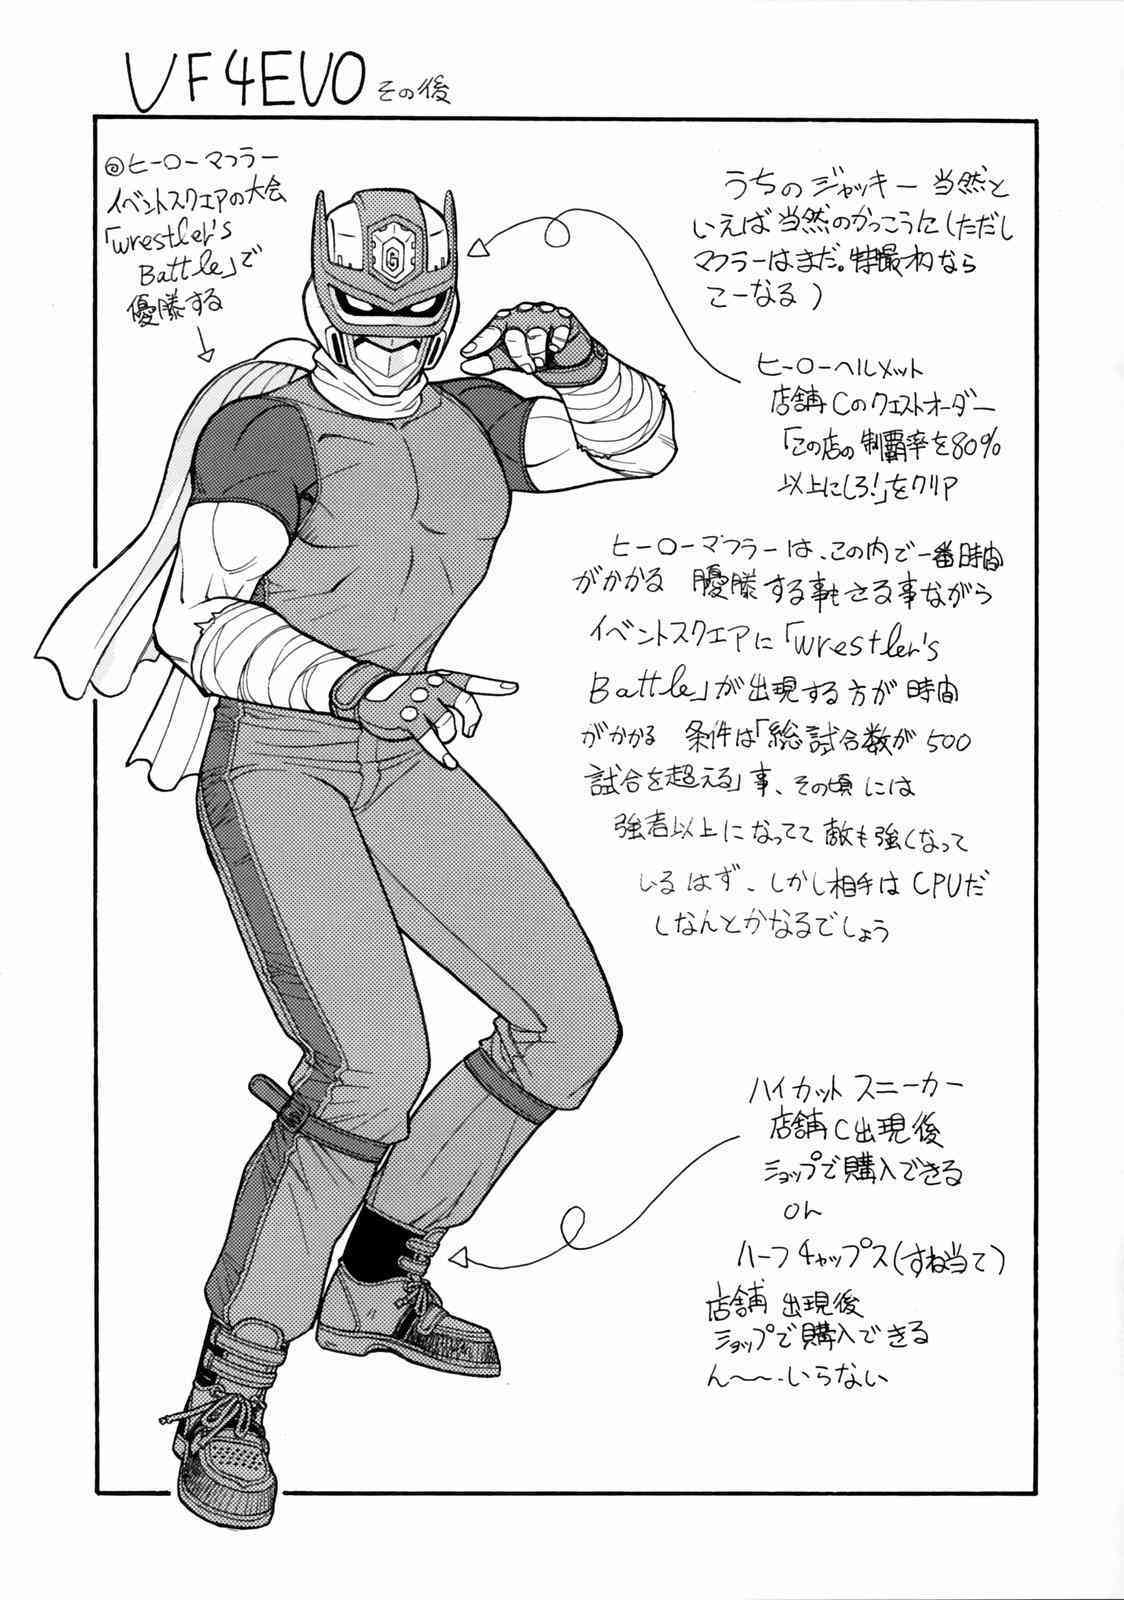 VF4EVO その後
◎ヒーローマフラー
イベントスクェアの大会
「wrestler's
Battle」で
優勝する
うちのジャッキー 当然と
いえば当然のかっこうに(ただし
マフラーはまだ。特撮オタなら
こーなる)
ヒーローヘルメット
店舗Cのクエストオーダー
「この店の制覇率を80%
以上にしろ!」をクリア
ヒーローマフラーは、この内で一番時間
がかかる 優勝する事もさる事ながら
イベントスクエアに「wrestler's
Battle」が出現する方が時間
がかかる 条件は「総試合数が500
試合を超える」事、その頃には
強者以上になってて敵も強くなって
いるはず、しかし相手はCPUだ
しなんとかなるでしょう
ハイカットスニーカー
店舗C出現後
ショップで購入できる
or
ハーフチャップス(すね当て)
店舗 出現後
ショップで購入できる
ん〜〜.いらない